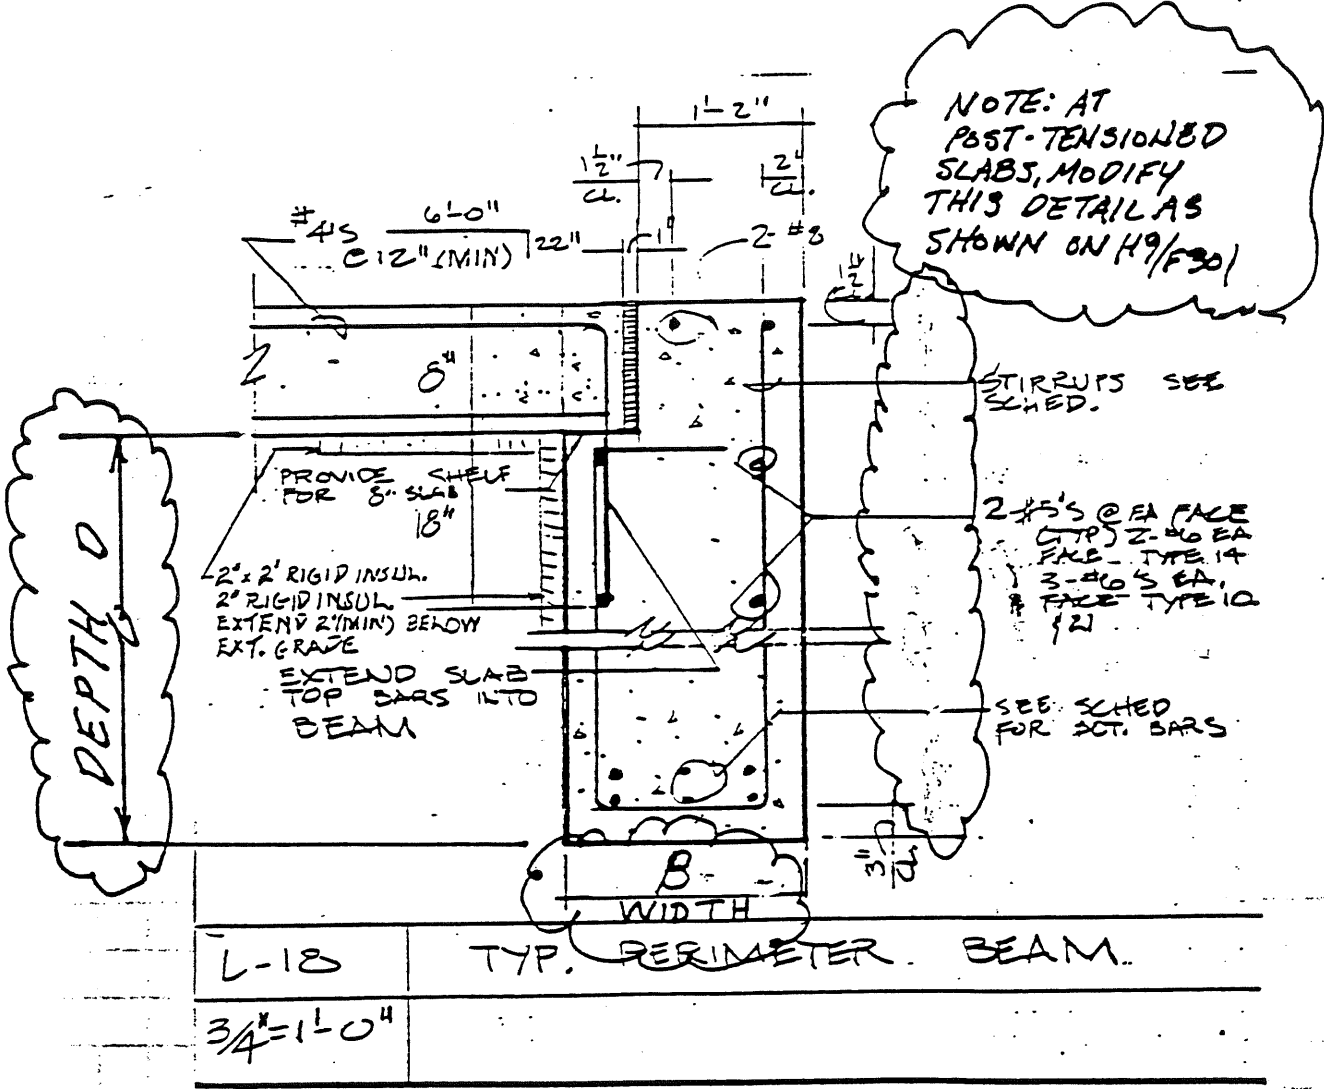 NOTE: AT
POST-TENSIONED
SLABS, MODIFY
THIS DETAIL AS
SHOWN ON H9/F301
1'-2"
1½"
CL.
2"
CL.
#4'S
6'-0"
@ 12" (MIN)
22"
1"
2-#8
8"
STIRRUPS SEE
SCHED.
PROVIDE SHELF
FOR 8" SLAB
18"
2-#5'S @ EA FACE
(TYP) 2-#6 EA
FACE - TYPE 14
3-#6'S EA.
FACE TYPE 10
& 21
2"x 2' RIGID INSUL.
2" RIGID INSUL.
EXTEND 2'(MIN) BELOW
EXT. GRADE
EXTEND SLAB
TOP BARS INTO
BEAM
DEPTH D
SEE SCHED
FOR BOT. BARS
3"
CL.
B
WIDTH
L-18
TYP. PERIMETER BEAM.
3/4"=1'-0"